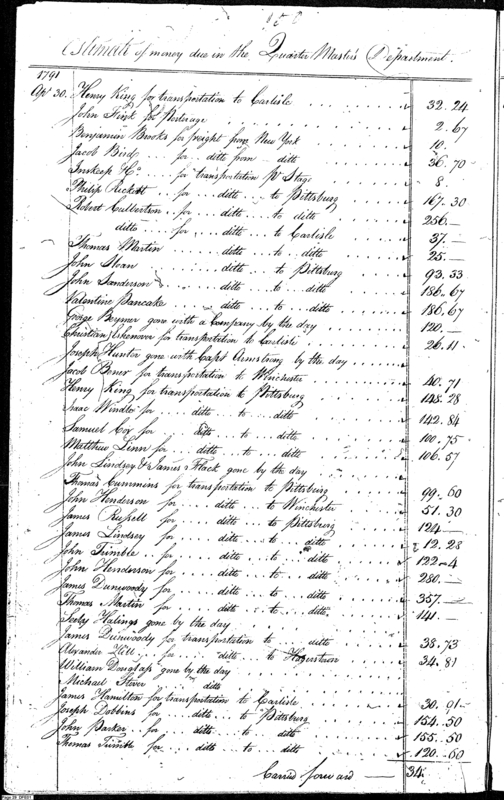 150
Estimate of money due in the Quarter Master's Department.
1791
Apr 30. Henry King for transportation to Carlisle 32.24
John Fink for Porterage 2.67
Benjamin Brooks for freight from New York 10.
Jacob Bird for ditto from ditto 36.70
Inskeep & Co for transportation pr Stage 8.
Philip Rickett for ditto to Pittsburg 167.30
Robert Culbertson for ditto to ditto 256.—
ditto for ditto to Carlisle 37.—
Thomas Martin ditto to ditto 25.—
John Sloan ditto to Pittsburg 93.33
John Sanderson ditto to ditto 186.67
Valentine Pancake ditto to ditto 186.67
George Beymer gone with a Company by the day 120.—
Christian for transportation to Carlisle 26.11
Joseph Hunter gone with Capt Armstrong by the day
Jacob for transportation to Winchester 40.71
Henry King for transportation to Pittsburg 148.28
Isaac for ditto to ditto 142.84
Samuel Coy for ditto to ditto 100.75
Matthew Linn for ditto to ditto 106.57
John Lindsey & James Flack gone by the day
Thomas Cummins for transportation to Pittsburg 99.60
John Henderson for ditto to Winchester 51.30
James Russell for ditto to Pittsburg 124.—
James Lindsey for ditto to ditto 12.28
John Trimble for ditto to ditto 122.4
John Henderson for ditto to ditto 280.—
James Dunwoody for ditto to ditto 357.—
Thomas Martin for ditto to ditto 141.—
Halings gone by the day
James Dunwoody for transportation to ditto 38.73
Alexander for ditto to Hagerstown 34.81
William Douglass gone by the day
Michael Stever ditto
James Hamilton for transportation to Carlisle 30.01
Joseph Dobbins for ditto to Pittsburg 154.50
John Parker for ditto to ditto 155.50
Thomas Tumble for ditto to ditto 120.60
Carried forward — 34.